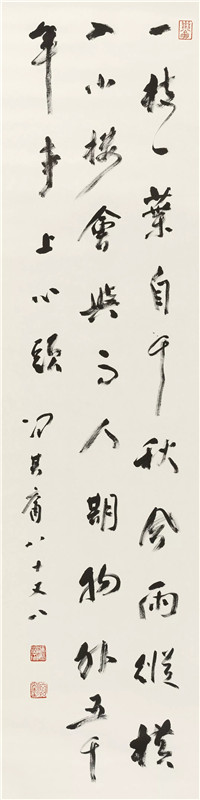 一枝一葉自千秋今雨縱橫
入小樓會與高人期物外五千
年事上心頭
馮其庸八十又八